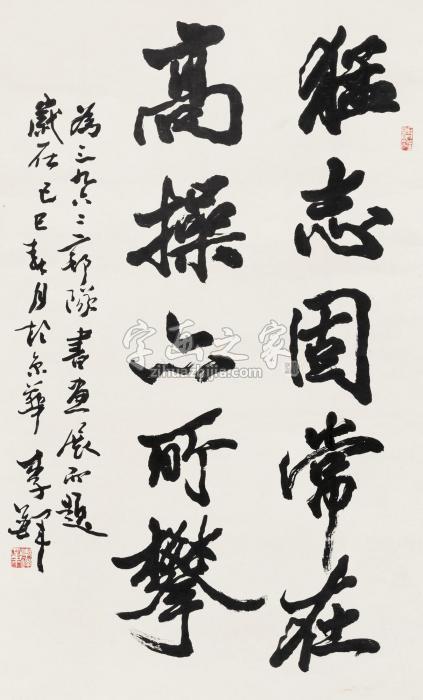 猛志固常在
高操所攀
為三九六三二部隊書畫展而題
歲在己巳春月於京華 李鐸
字画之家
zihuazhijia.com